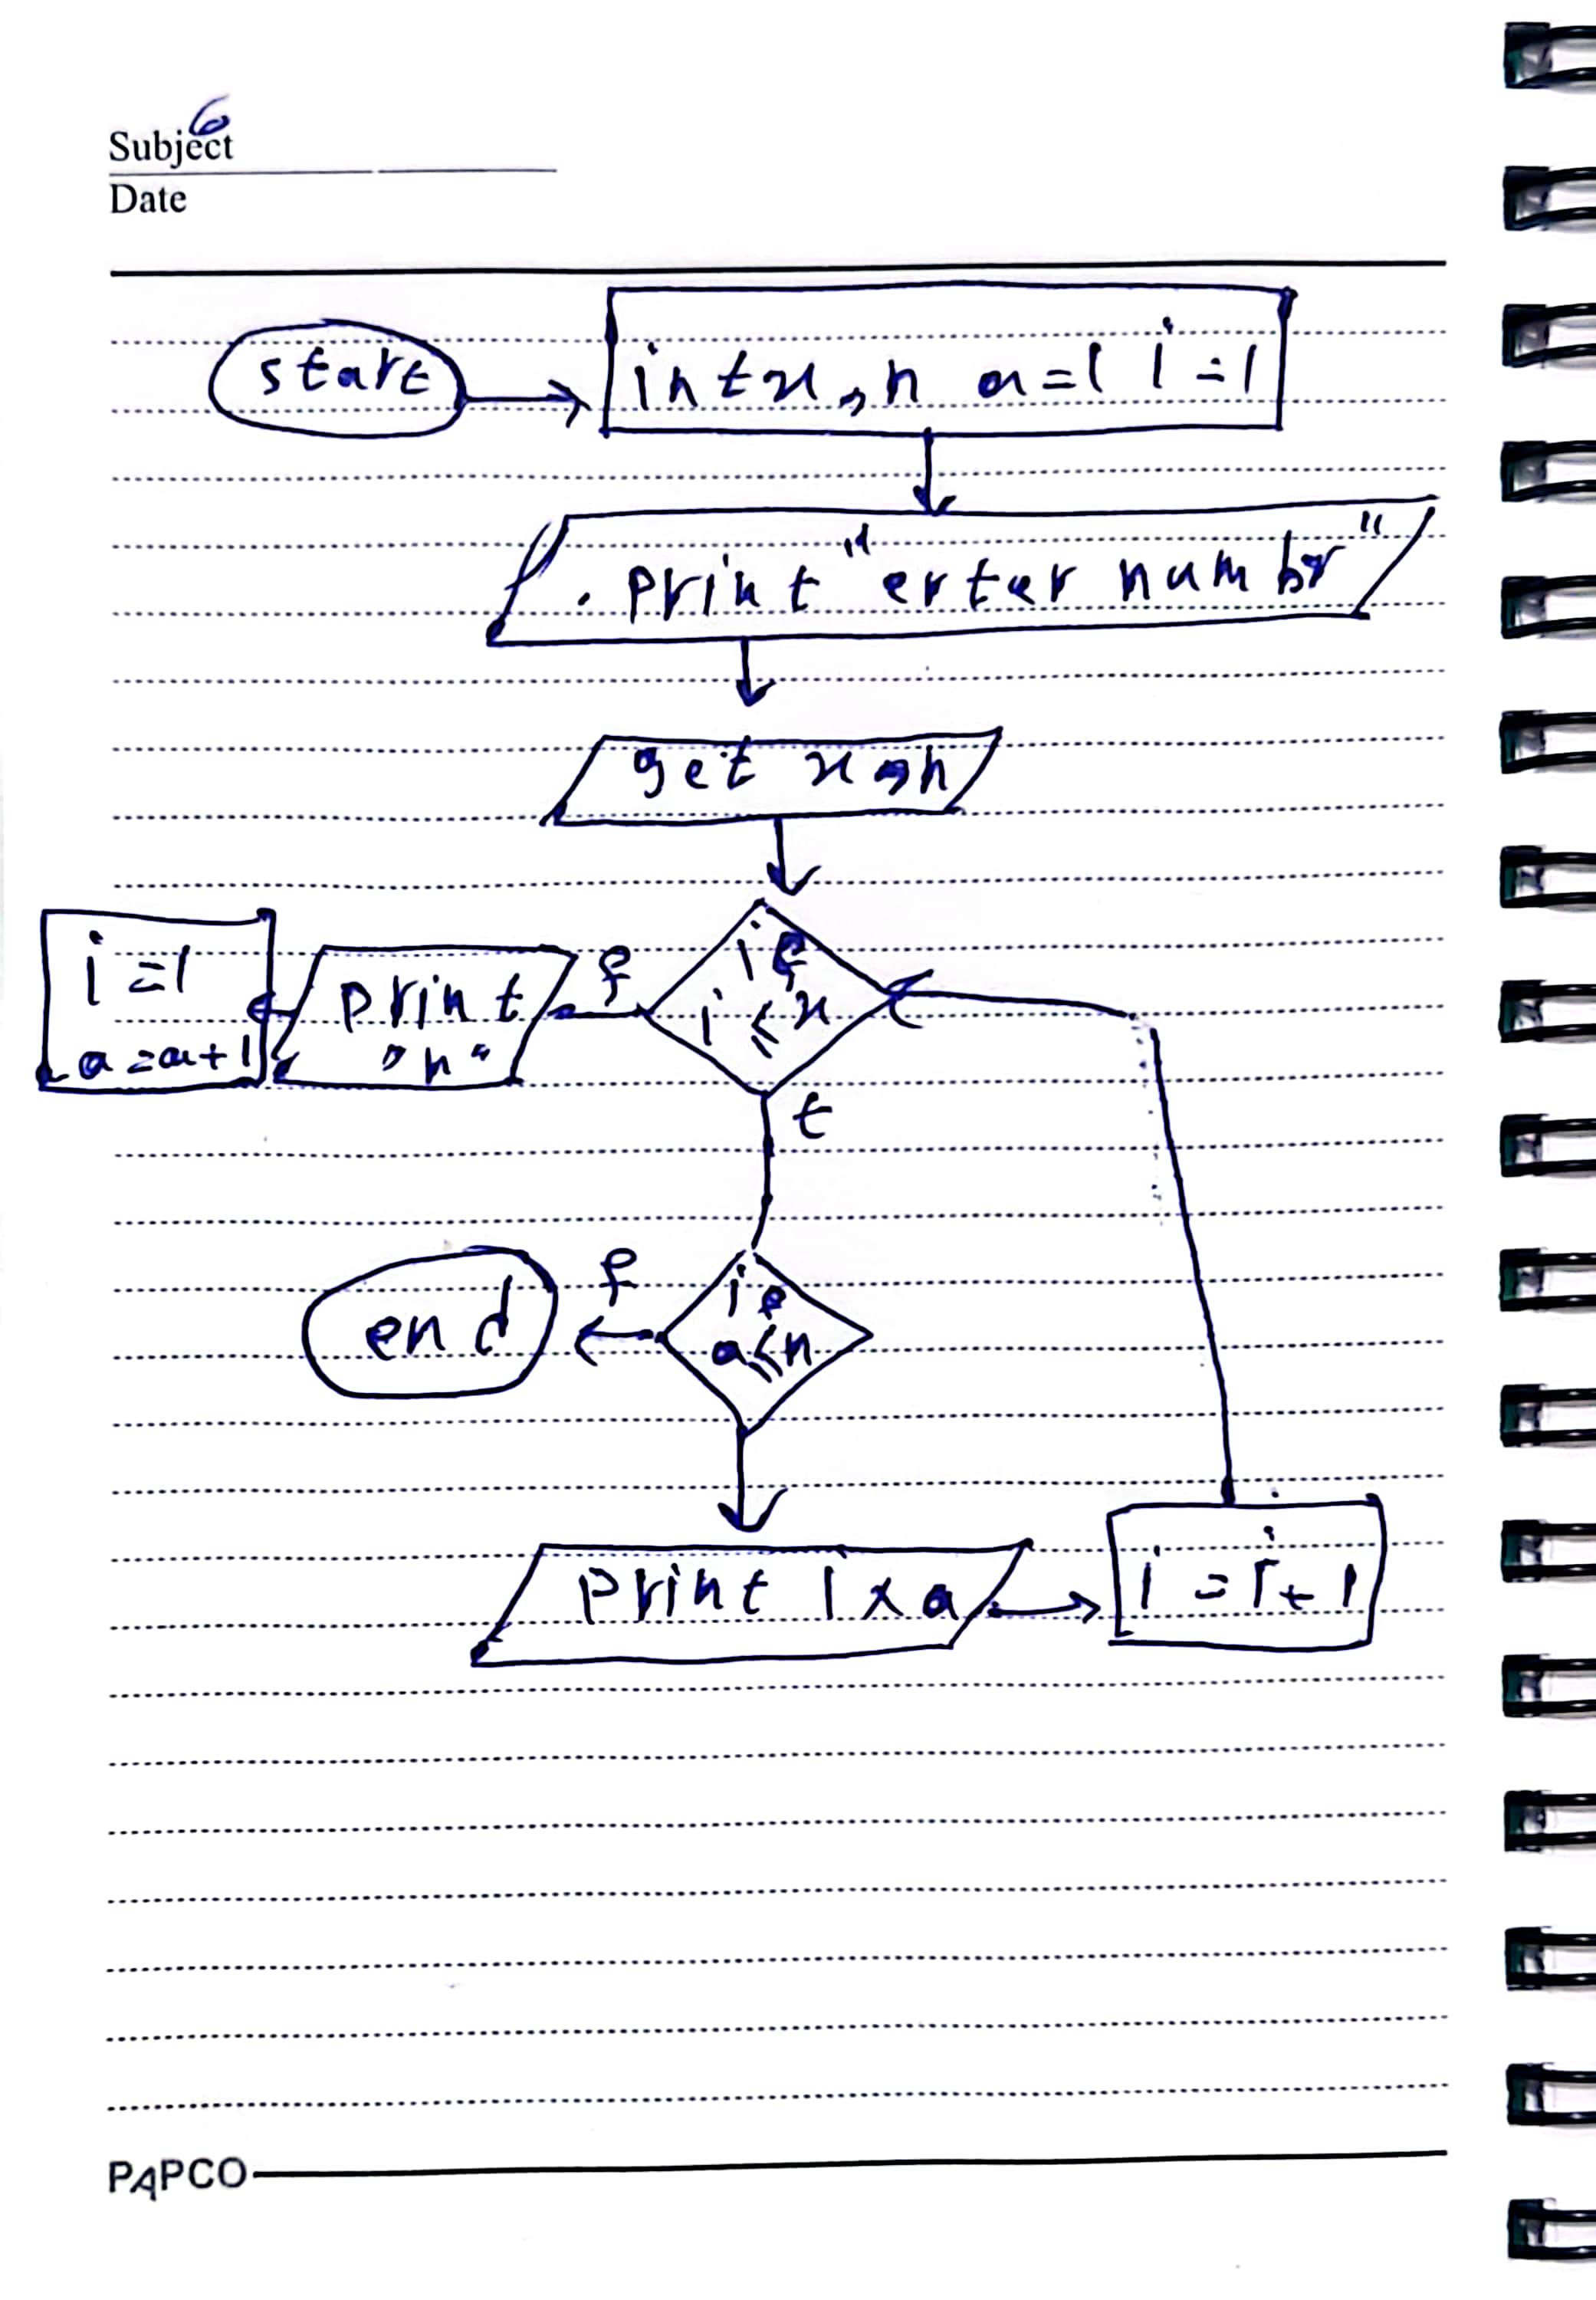 6
Subject
Date
start
int x, n a=1 i=1
print "erter numbr"
get x, n
if
i ≤ x
f
print
"n"
i=1
a=a+1
t
if
a≤n
f
end
print i × a
i = i + 1
PAPCO